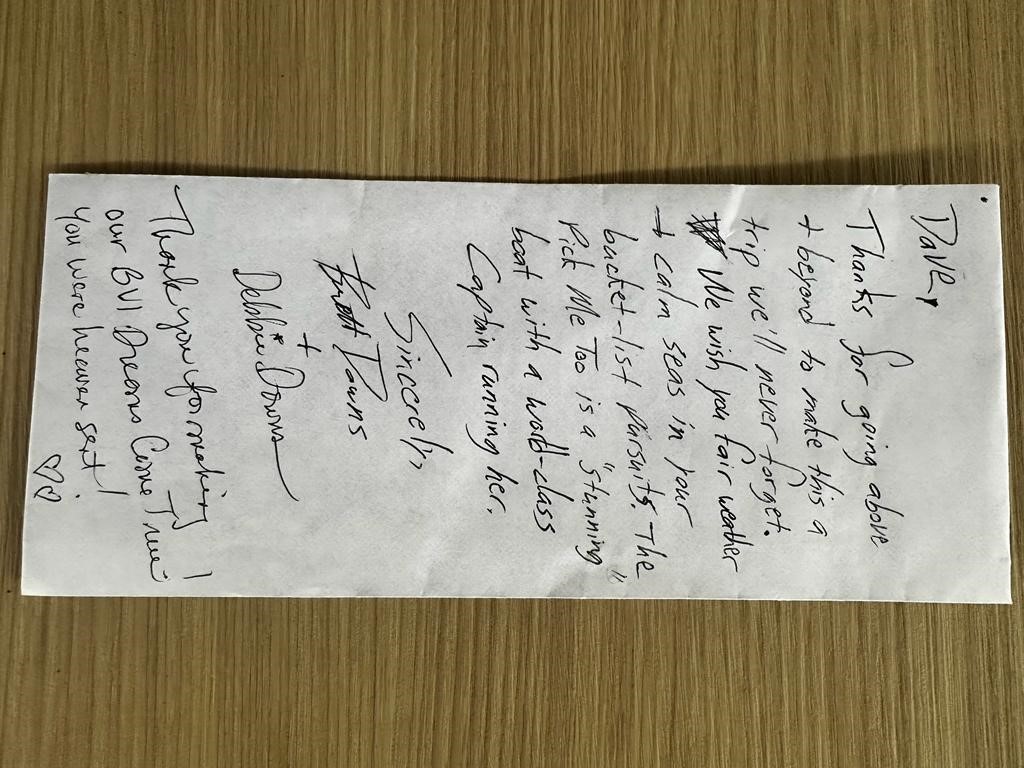 Dave,
Thanks for going above
+ beyond to make this a
trip we'll never forget.
We wish you fair weather
+ calm seas in your
bucket-list pursuits. The
Pick Me Too is a "stunning"
boat with a world-class
Captain running her.
Sincerely,
Brett Downs
+
Debbie Downs
Thank you for making
our BVI Dreams Come True!
You were heaven sent!
♡♡